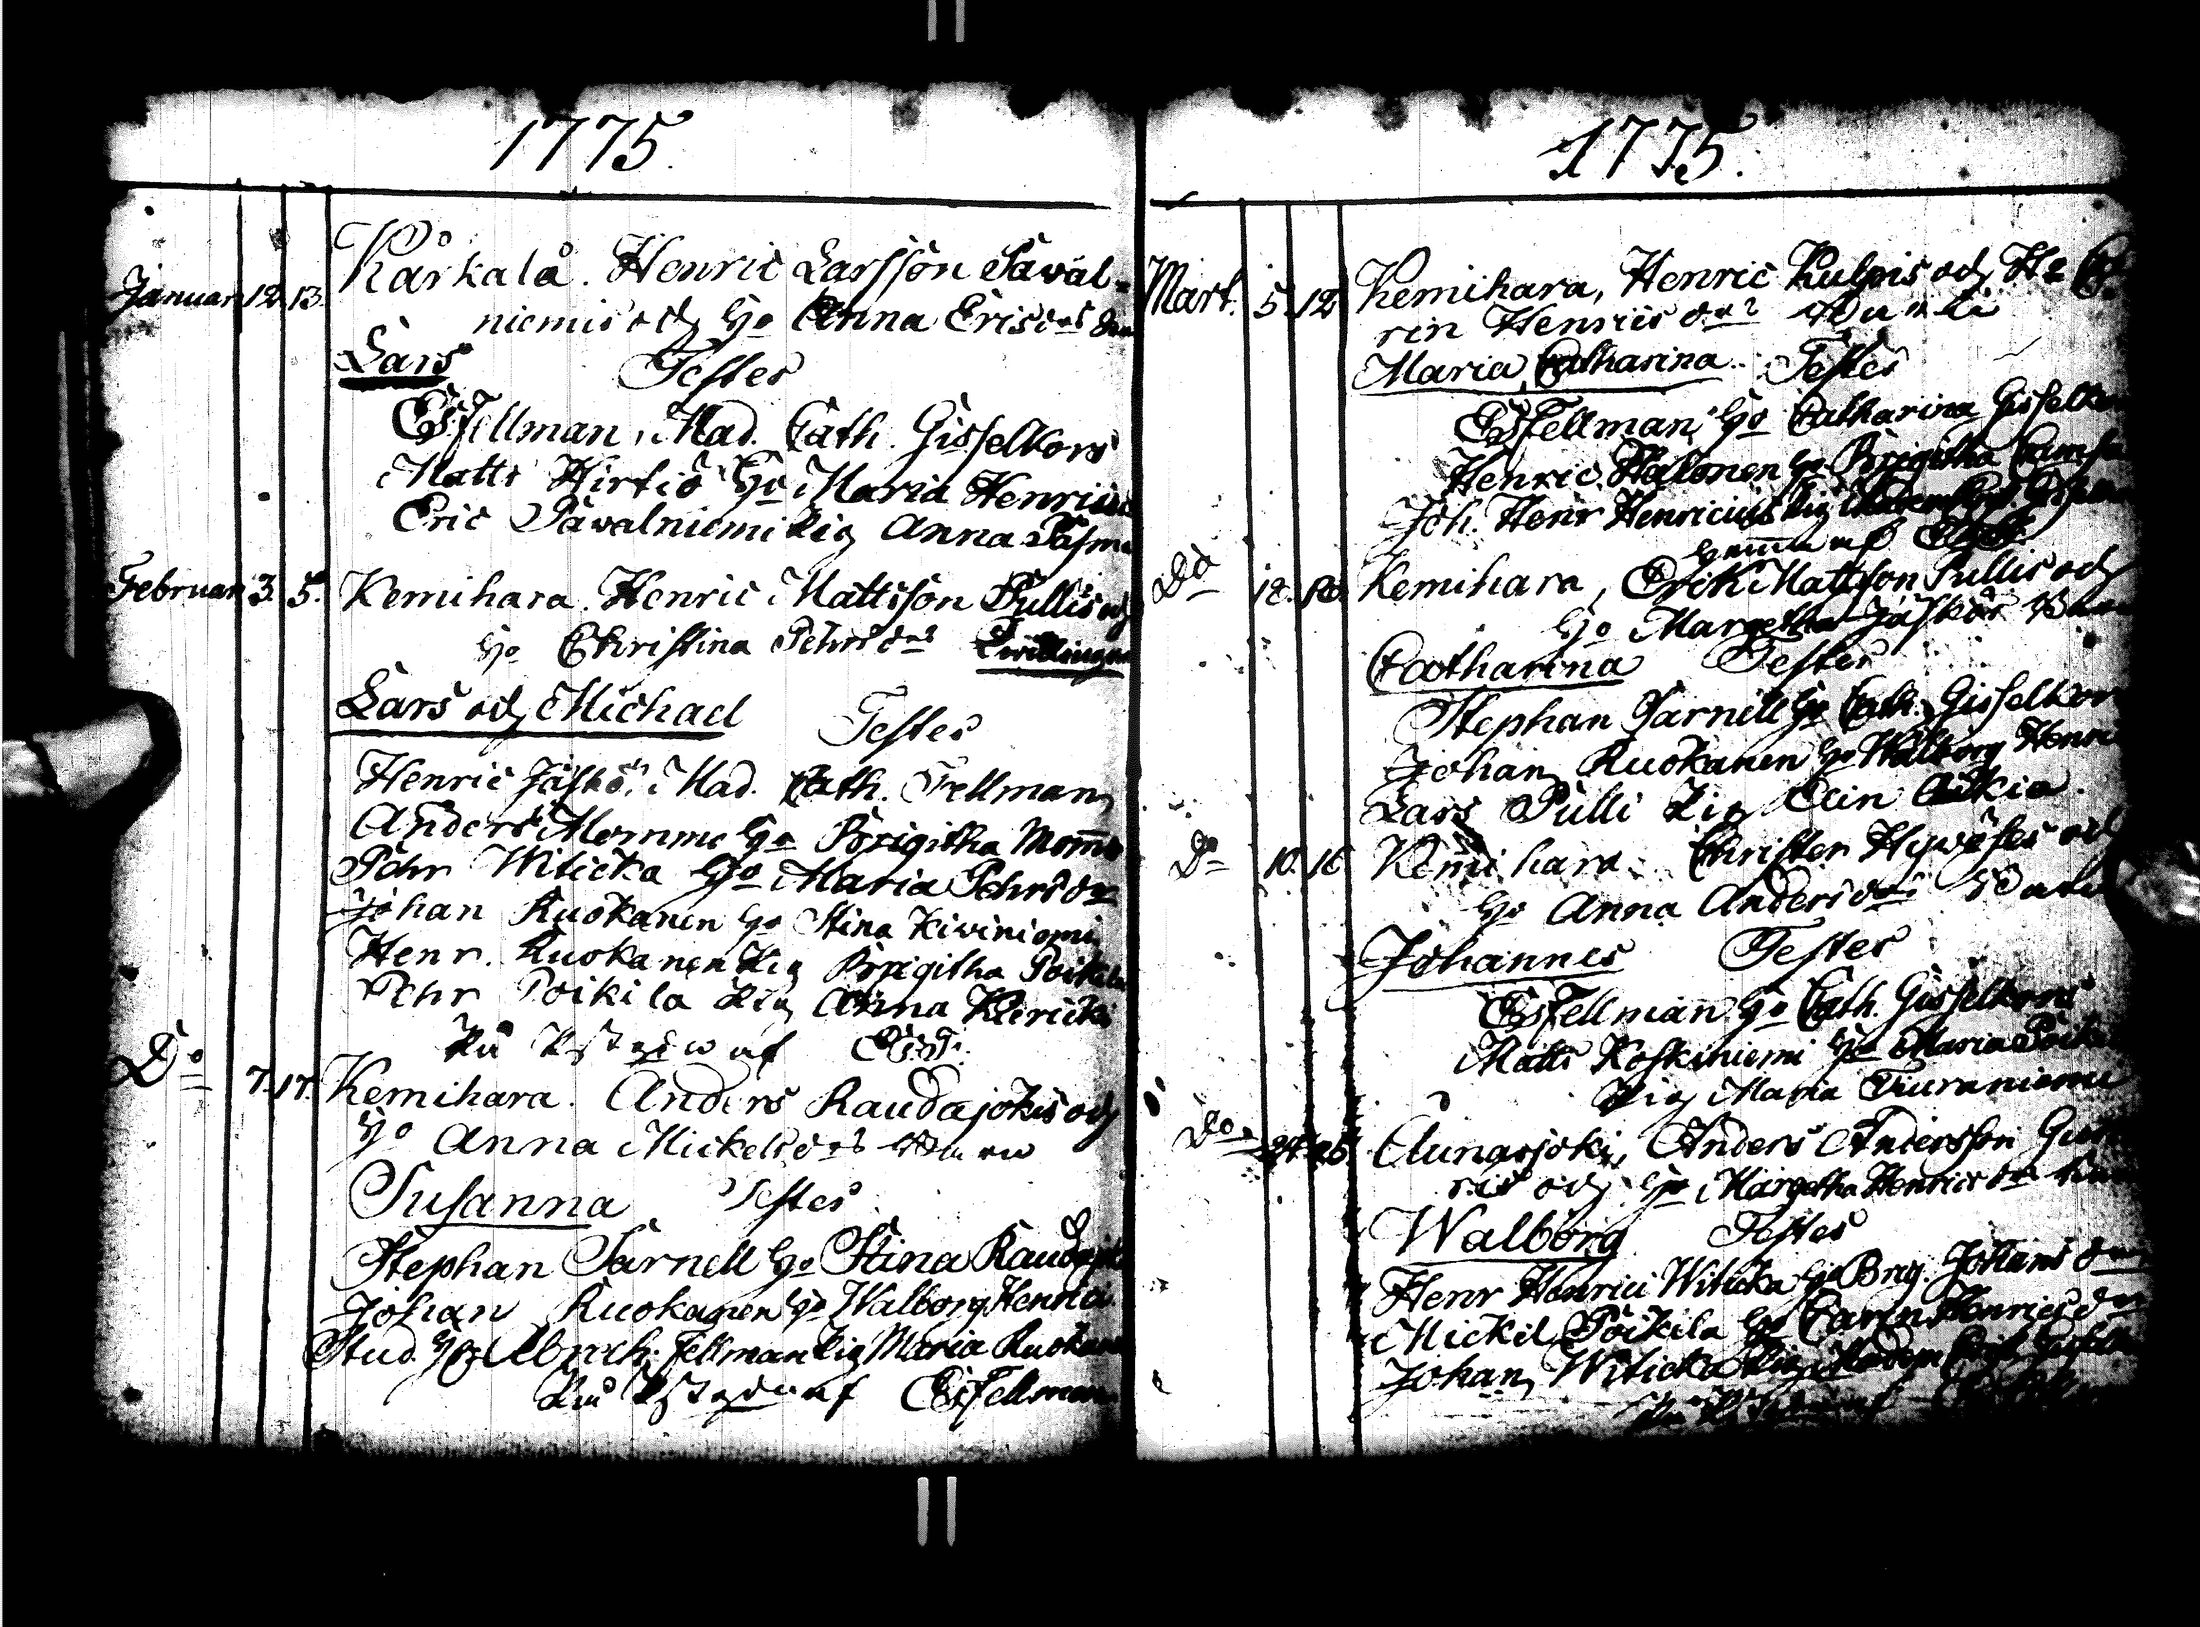 1775.
Januari 12. 13. Kårkalå. Henric Larsson Sawal-
niemis och Ho Anna Ericsdrs
Lars Testes
Es Fellman, Mad. Cath. Gisselkors
Matts Hirtiö Ho Maria Henrici
Eric Sawalniemi Pig Anna
Februari 3. 5. Kemihara. Henric Mattsson Pullis och
Ho Christina Pehrsdrs Twillingar
Lars och Michael Testes
Henric Jäskö, Mad. Cath. Fellman
Anders Momme Ho Brigitha Momme
Pehr Witicka Ho Maria Pehrsdr
Johan Ruokanen Ho Stina Kiviniemi
Henr. Ruokanen Pig Brigitha Poikela
Pehr Poikila Pig Anna
af EsF.
Do 7. 17. Kemihara. Anders Raudajokis och
Ho Anna Mickelsdrs Barn
Susanna Testes
Stephan Sarnell Ho Stina Raudajoki
Johan Ruokanen Ho Walborg Henrici
Stud. Abrah. Fellman Pig Maria Ruokanen
af Es Fellman
1775.
Mart. 5. 12. Kemihara, Henric Kulpis och Ho
rin Henricsdrs
Maria Catharina. Testes
Es Fellman, Ho Catharina Gisselkor
Henric Halonen Ho Brigitha
Joh. Henr Henricius Pig
af
Do 12. Kemihara, Erik Mattsson Pullis och
Ho Margetha Jäskös Barn
Catharina Testes
Stephan Sarnell Ho Cath. Gisselkor
Johan Ruokanen Ho Walborg Henri
Lars Pulli Pig Elin
Do 10. 16 Kemihara. Christer Hywäses och
Ho Anna Andersdrs Barn
Johannes Testes
Es Fellman Ho Cath. Gisselkors
Matts Koskiniemi Ho Maria Poike
Pig Maria Tiuraniemi
Do 24. 26 Aunasjoki, Anders Andersson
ris och Ho Margetha Henricsdrs
Walborg Testes
Henr Henrici Witicka Ho Brig. Johansdr
Mickil Poikila Ho Carin Henricsdr
Johan Witicka Pig